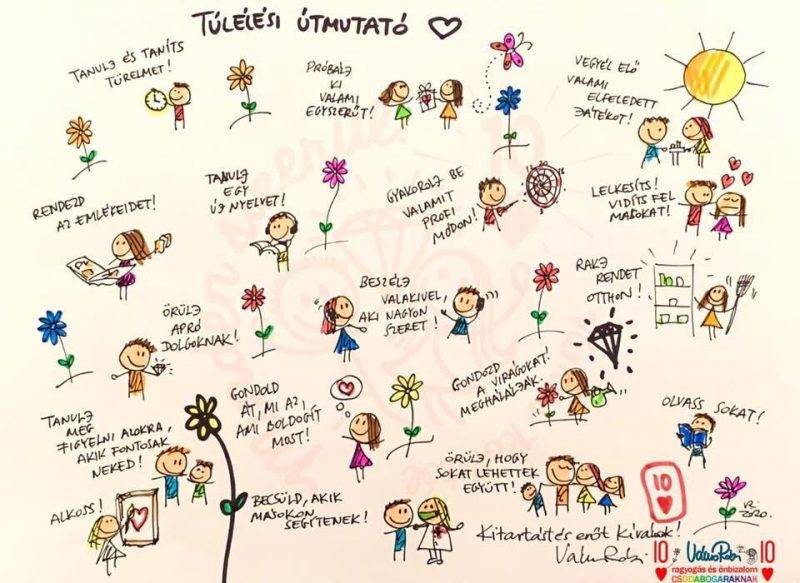 TÚLÉLÉSI ÚTMUTATÓ
TANULJ ÉS TANÍTS
TÜRELMET!
PRÓBÁLJ
KI
VALAMI
EGYSZERŰT!
VEGYÉL ELŐ
VALAMI
ELFELEDETT
JÁTÉKOT!
RENDEZD
AZ EMLÉKEIDET!
TANULJ
EGY
ÚJ NYELVET!
GYAKOROLJ BE
VALAMIT
PROFI
MÓDON!
LELKESÍTS!
VIDÍTS FEL
MÁSOKAT!
ÖRÜLJ
APRÓ
DOLGOKNAK!
BESZÉLJ
VALAKIVEL,
AKI NAGYON
SZERET!
RAKJ
RENDET
OTTHON!
TANULJ
MEG
FIGYELNI AZOKRA,
AKIK FONTOSAK
NEKED!
GONDOLD
ÁT, MI AZ,
AMI BOLDOGÍT
MOST!
GONDOZD
A VIRÁGOKAT!
MEGHÁLÁLJÁK.
OLVASS SOKAT!
ALKOSS!
BECSÜLD, AKIK
MÁSOKON
SEGÍTENEK!
ÖRÜLJ, HOGY
SOKAT LEHETTEK
EGYÜTT!
10
VR.
2020.
Kitartást és erőt kívánok!
Valuska Robi
10 10
ragyogás és önbizalom
CSODABOGARAKNAK